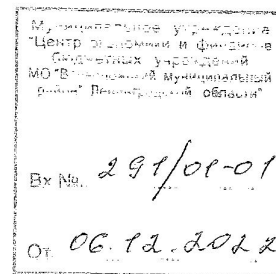 Муниципальное учреждение
"Центр экономики и финансов
бюджетных учреждений
МО "В муниципальный
район" Ленинградской области"
Вх №. 291/01-01
От 06.12.2022